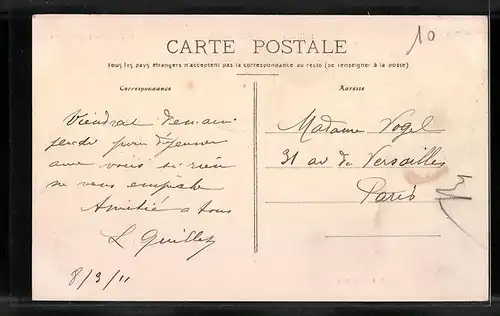 10
CARTE POSTALE
Tous les pays étrangers n'acceptent pas la correspondance au recto (se renseigner à la poste)
Correspondance
Adresse
Viendrai demain
jeudi pour déjeuner
avec vous si rien
ne vous empêche
Amitié a tous
L Guillet
8/3/11
Madame Vogel
31 av de Versailles
Paris